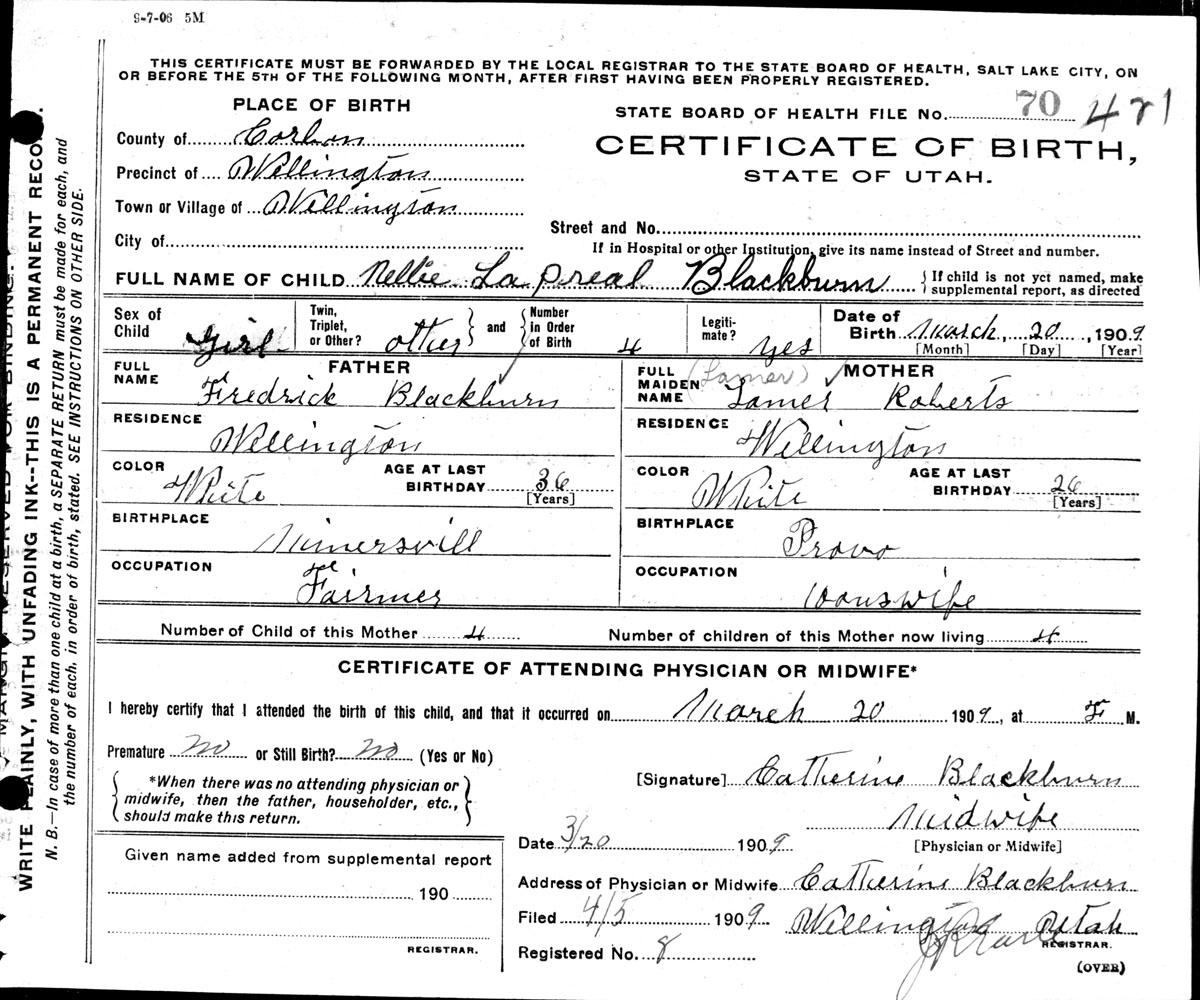 9-7-06 5M
THIS CERTIFICATE MUST BE FORWARDED BY THE LOCAL REGISTRAR TO THE STATE BOARD OF HEALTH, SALT LAKE CITY, ON
OR BEFORE THE 5TH OF THE FOLLOWING MONTH, AFTER FIRST HAVING BEEN PROPERLY REGISTERED.
PLACE OF BIRTH
STATE BOARD OF HEALTH FILE No. 70 421
County of Corbon
CERTIFICATE OF BIRTH,
STATE OF UTAH.
Precinct of Wellington
Town or Village of Wellington
City of
Street and No.
If in Hospital or other Institution, give its name instead of Street and number.
FULL NAME OF CHILD Nellie La preal Blackburn { If child is not yet named, make
supplemental report, as directed
Sex of Child Girl
Twin, Triplet, or Other? other } and { Number in Order of Birth 4
Legiti-mate? yes
Date of Birth March, 20, 1909
[Month] [Day] [Year]
FATHER
FULL NAME Fredrick Blackburn
RESIDENCE Wellington
COLOR White
AGE AT LAST BIRTHDAY 36 [Years]
BIRTHPLACE Minersvill
OCCUPATION Fairmer
(Lamer) ✓ MOTHER
FULL MAIDEN NAME Lamer Roberts
RESIDENCE Wellington
COLOR White
AGE AT LAST BIRTHDAY 26 [Years]
BIRTHPLACE Provo
OCCUPATION Houswife
Number of Child of this Mother 4
Number of children of this Mother now living 4
CERTIFICATE OF ATTENDING PHYSICIAN OR MIDWIFE*
I hereby certify that I attended the birth of this child, and that it occurred on March 20 1909, at F M.
Premature no or Still Birth? no (Yes or No)
{ *When there was no attending physician or
midwife, then the father, householder, etc.,
should make this return. }
[Signature] Catherine Blackburn
Midwife
[Physician or Midwife]
Date 3/20 1909
Given name added from supplemental report
190
REGISTRAR.
Address of Physician or Midwife Catherine Blackburn
Filed 4/5 1909 Wellington Utah
REGISTRAR.
Registered No. 8
(OVER)
WRITE PLAINLY, WITH UNFADING INK--THIS IS A PERMANENT RECO
N. B.—In case of more than one child at a birth, a SEPARATE RETURN must be made for each, and
the number of each. in order of birth, stated. SEE INSTRUCTIONS ON OTHER SIDE.